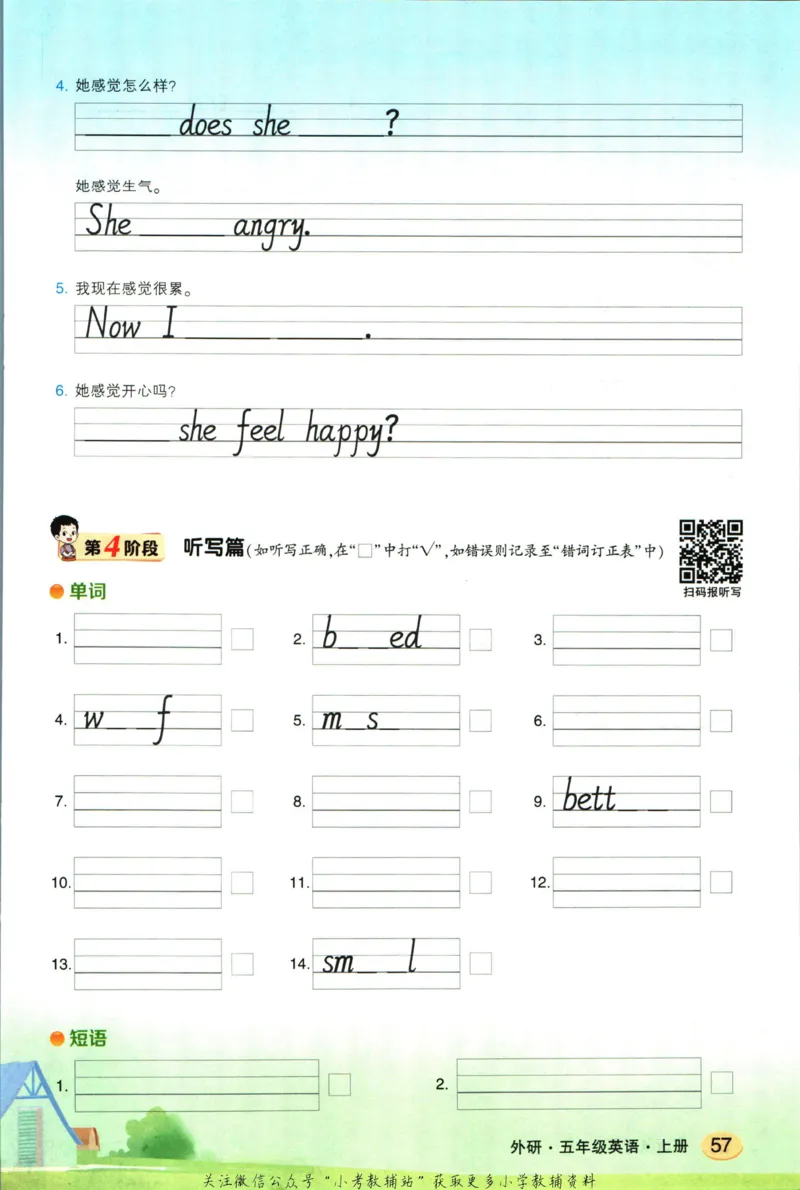 4. 她感觉怎么样?
______ does she ______ ?
她感觉生气。
She ______ angry.
5. 我现在感觉很累。
Now I ______ ______ .
6. 她感觉开心吗?
______ she feel happy?
第4阶段 听写篇(如听写正确,在“□”中打“√”,如错误则记录至“错词订正表”中)
扫码报听写
单词
1. 2. b__ __ed 3.
4. w__ __f 5. m__s__ 6.
7. 8. 9. bett__ __
10. 11. 12.
13. 14. sm__ __l
短语
1. 2.
外研·五年级英语·上册 57
关注微信公众号“小考教辅站”获取更多小学教辅资料